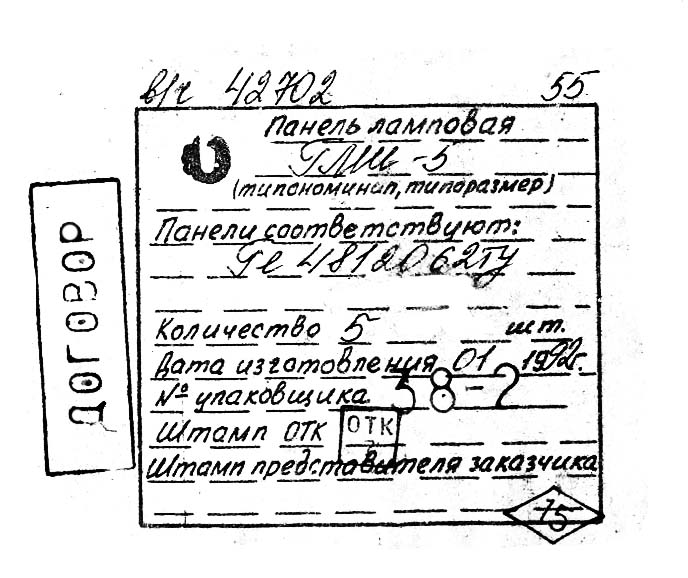 в/ч 42702 55
Панель ламповая
ПЛШ-5
(типономинал, типоразмер)
Панели соответствуют:
Ге 4812062ТУ
Количество 5 шт.
Дата изготовления 01 1992г.
№ упаковщика 38-2
Штамп ОТК ОТК
Штамп представителя заказчика
75
ДОГОВОР